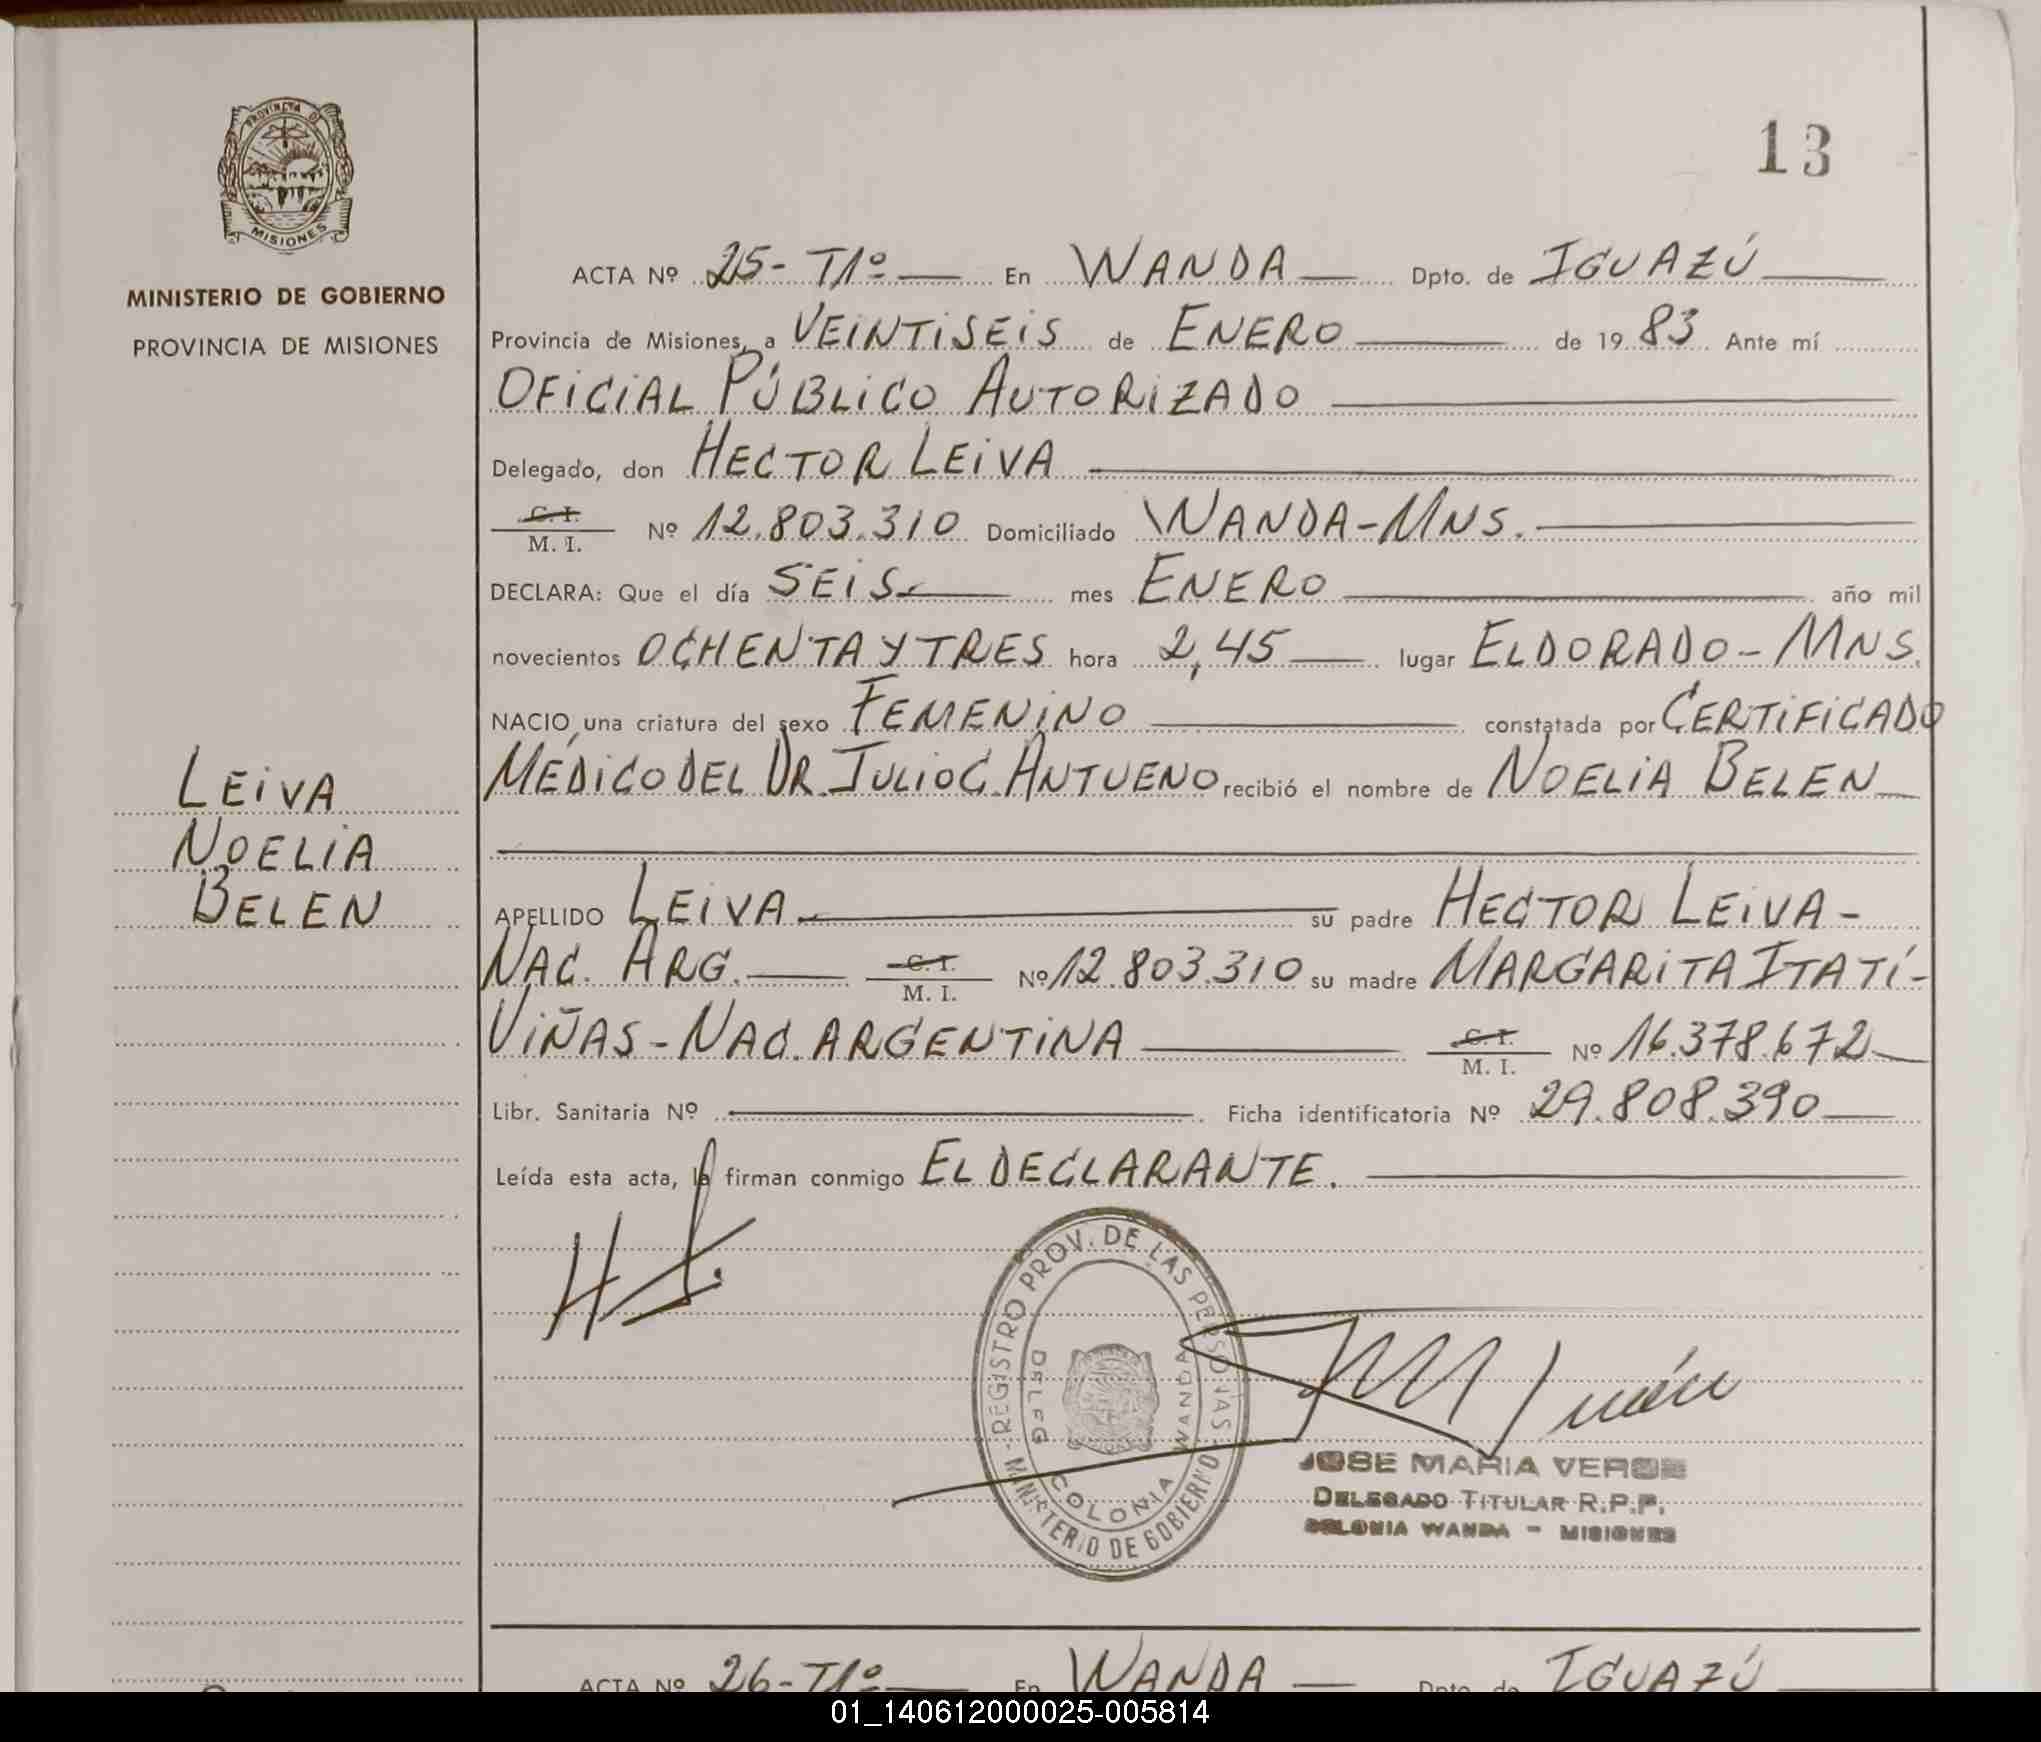 PROVINCIA DE
MISIONES
MINISTERIO DE GOBIERNO
PROVINCIA DE MISIONES
13
ACTA Nº 25- T1º — En WANDA — Dpto. de IGUAZÚ
Provincia de Misiones, a VEINTISEIS de ENERO de 19 83 Ante mí
OFICIAL PÚBLICO AUTORIZADO
Delegado, don HECTOR LEIVA
C. I.
M. I. Nº 12.803.310 Domiciliado WANDA-MNS.
DECLARA: Que el día SEIS mes ENERO año mil
novecientos OCHENTA Y TRES hora 2,45 lugar ELDORADO-MNS.
NACIO, una criatura del sexo FEMENINO constatada por CERTIFICADO
MÉDICO DEL DR. JULIO C. ANTUENO recibió el nombre de NOELIA BELEN
LEIVA
NOELIA
BELEN
APELLIDO LEIVA su padre HECTOR LEIVA-
NAC. ARG. C. I.
M. I. Nº 12.803.310 su madre MARGARITA ITATÍ-
VIÑAS-NAC. ARGENTINA C. I.
M. I. Nº 16.378.672
Libr. Sanitaria Nº Ficha identificatoria Nº 29.808.390
Leída esta acta, la firman conmigo EL DECLARANTE.
REGISTRO PROV. DE LAS PERSONAS
MINISTERIO DE GOBIERNO
DELEG COLONIA WANDA
JOSE MARIA
DELEGADO TITULAR R.P.P.
COLONIA WANDA - MISIONES
ACTA Nº 26-T1º En WANDA — Dpto. de IGUAZÚ
01_140612000025-005814